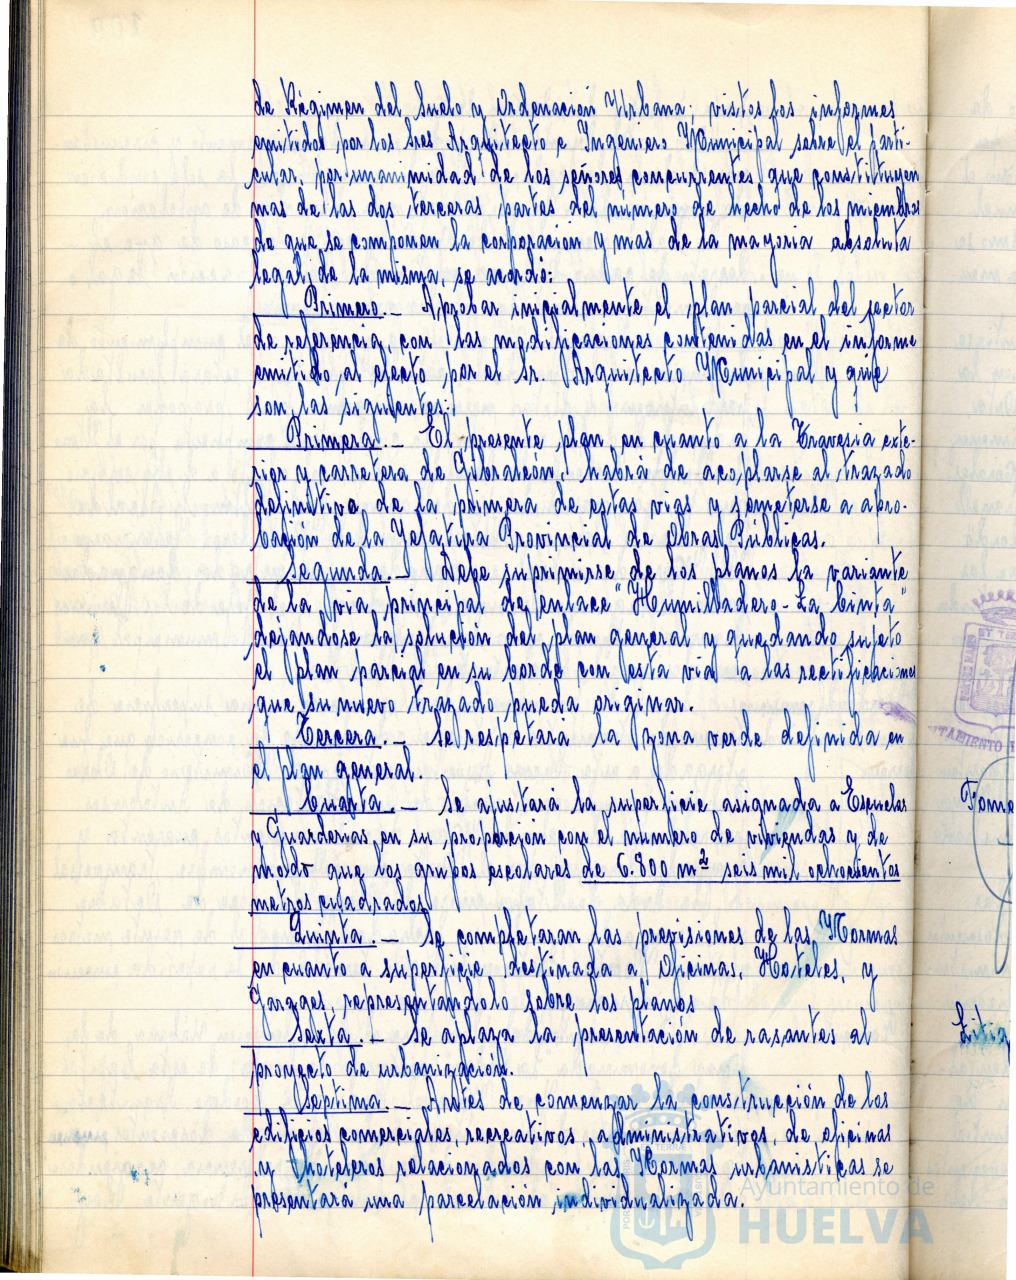 de Régimen del Suelo y Ordenación Urbana; vistos los informes
emitidos por los Sres Arquitecto e Ingeniero Municipal sobre el parti-
cular, por unanimidad de los señores concurrentes que constituyen
mas de las dos terceras partes del número de hecho de los miembros
de que se componen la corporación y mas de la mayoria absoluta
legal, de la misma, se acordó:
Primero.- Aprobar inicialmente el plan parcial del sector
de referencia, con las modificaciones contenidas en el informe
emitido, al efecto, por el Sr. Arquitecto Municipal y que
son, las siguientes:
Primera.- El presente plan en cuanto a la Travesia exte-
rior y carretera de Gibraleón, habrá de acoplarse al trazado
definitivo de la primera de estas vias y someterse a apro-
bación de la Jefatura Provincial de Obras Públicas.
Segunda.- Debe suprimirse de los planos la variante
de la via principal de enlace "Humilladero-La Cinta"
dejándose la solución del plan general y quedando sujeto
el plan parcial en su borde con esta via a las rectificaciones
que su nuevo trazado pueda originar.
Tercera.- Se respetará la zona verde definida en
el plan general.
Cuarta.- Se ajustará la superficie asignada a Escuelas
y Guarderias en su proporción con el número de viviendas y de
modo que los grupos escolares de 6.800 m² seis mil ochocientos
metros cuadrados.
Quinta.- Se completaran las previsiones de las Normas
en cuanto a superficie destinada a Oficinas, Hoteles, y
Garages, representandolo sobre los planos
Sexta.- Se aplaza la presentación de rasantes al
proyecto de urbanización.
Septima.- Antes de comenzar la construcción de los
edificios comerciales, recreativos, administrativos, de oficinas
y hoteleros relacionados con las Normas urbanisticas se
presentará una parcelación individualizada.
Ayuntamiento de
HUELVA